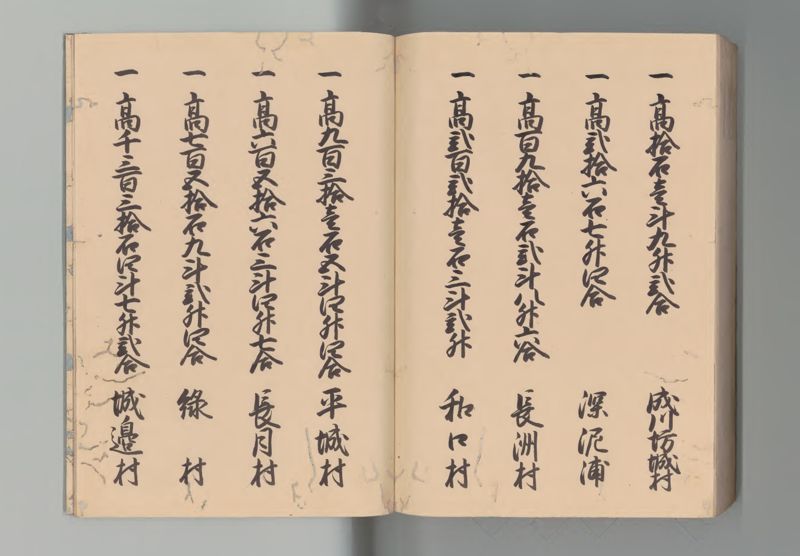 一 高拾石壱斗九升弐合 成川坊城村
一 高弐拾六石七升四合 深泥浦
一 高百九拾壱石弐斗八升六合 長洲村
一 高弐百弐拾壱石三斗弐升 和口村
一 高九百三拾壱石五斗四升四合 平城村
一 高六百五拾六石三斗四升七合 長月村
一 高七百五拾石九斗弐升四合 緑村
一 高千三百三拾石四斗七升弐合 城邊村